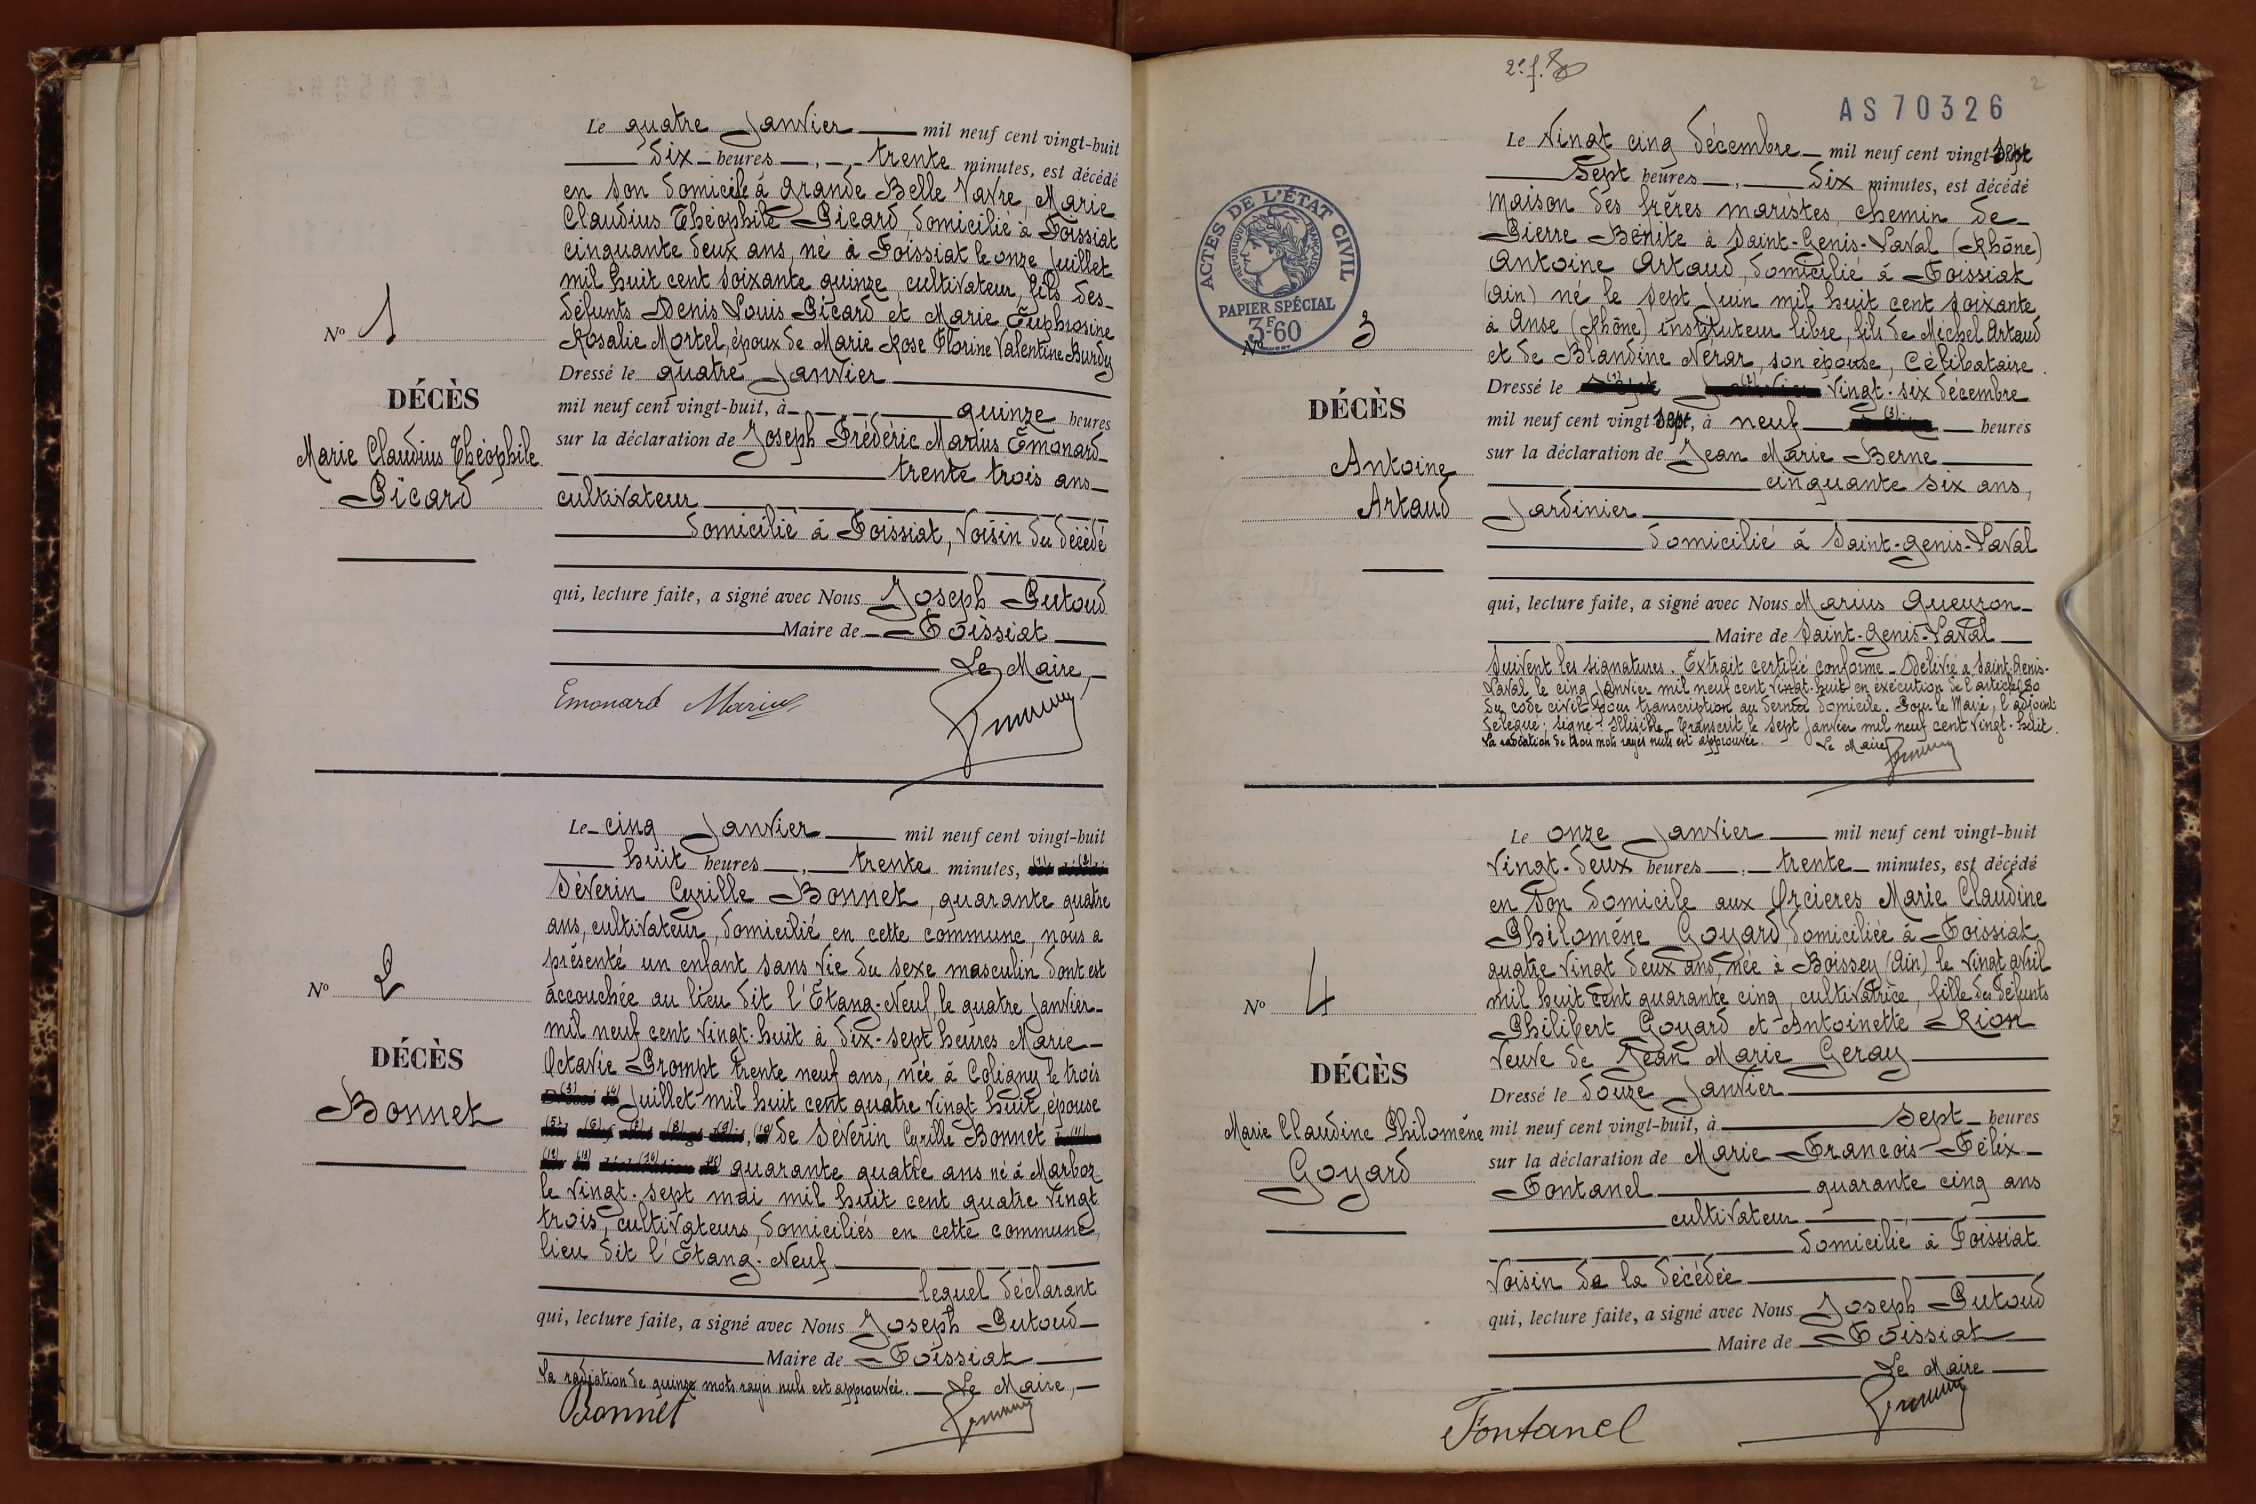 Le quatre Janvier mil neuf cent vingt-huit
dix heures, trente minutes, est décédé
en son domicile à Grande Belle Vavre, Marie
Claudius Théophile Picard, domicilié à Foissiat
cinquante deux ans, né à Foissiat le onze Juillet
mil huit cent soixante quinze, cultivateur, fils des
défunts Denis Louis Picard et Marie Euphrosine
Rosalie Mortel, époux de Marie Rose Florine Valentine Burdy
Dressé le quatre Janvier
mil neuf cent vingt-huit, à quinze heures
sur la déclaration de Joseph Frédéric Marius Emonard
trente trois ans
cultivateur
domicilié à Foissiat, voisin du décédé
qui, lecture faite, a signé avec Nous Joseph Putoud
Maire de Foissiat
Le Maire,
Emonard Marius
N° 1
DÉCÈS
Marie Claudius Théophile
Picard
Le cinq Janvier mil neuf cent vingt-huit
huit heures, trente minutes, (1) (2)
Séverin Cyrille Bonnet, quarante quatre
ans, cultivateur, domicilié en cette commune, nous a
présenté un enfant sans vie du sexe masculin dont est
accouchée au lieu dit l'Etang-Neuf, le quatre Janvier
mil neuf cent vingt-huit à dix-sept heures Marie
Octavie Prompt trente neuf ans, née à Coligny le trois
(3) (4) Juillet mil huit cent quatre vingt huit, épouse
(5) (6) (7) (8) (9) (10) de Séverin Cyrille Bonnet (11)
(12) (13) (14) (15) quarante quatre ans né à Marboz
le vingt-sept mai mil huit cent quatre vingt
trois, cultivateurs, domiciliés en cette commune,
lieu dit l'Etang-Neuf
lequel déclarant
qui, lecture faite, a signé avec Nous Joseph Putoud
Maire de Foissiat
La radiation de quinze mots rayés nuls est approuvée. Le Maire,
Bonnet
N° 2
DÉCÈS
Bonnet
2e f.
2
AS 70326
ACTES DE L'ÉTAT CIVIL
RÉPUBLIQUE FRANÇAISE
PAPIER SPÉCIAL
3F60
Le vingt cinq décembre mil neuf cent vingt-sept
sept heures, dix minutes, est décédé
maison des frères maristes, chemin de
Pierre Bénite à Saint-Genis-Laval (Rhône)
Antoine Artaud, domicilié à Foissiat
(Ain) né le sept Juin mil huit cent soixante
à Anse (Rhône) instituteur libre, fils de Michel Artaud
et de Blandine Nérar, son épouse, Célibataire.
Dressé le (1) (2) vingt-six décembre
mil neuf cent vingt sept, à neuf (3) heures
sur la déclaration de Jean Marie Berne
cinquante six ans,
Jardinier
domicilié à Saint-Genis-Laval
qui, lecture faite, a signé avec Nous Marius Gueuron
Maire de Saint-Genis-Laval
Suivent les signatures. Extrait certifié conforme. Délivré à Saint-Genis-
Laval le cinq Janvier mil neuf cent vingt-huit en exécution de l'article 80
du code civil pour transcription au dernier domicile. Pour le Maire, l'adjoint
délégué, signé: Illisible. Transcrit le sept Janvier mil neuf cent vingt-huit.
La radiation de trois mots rayés nuls est approuvée. Le Maire
N° 3
DÉCÈS
Antoine
Artaud
Le onze Janvier mil neuf cent vingt-huit
vingt-deux heures, trente minutes, est décédé
en son domicile aux Orcieres Marie Claudine
Philomène Goyard, domiciliée à Foissiat
quatre vingt deux ans, née à Boissey (Ain) le vingt avril
mil huit cent quarante cinq, cultivatrice, fille des défunts
Philibert Goyard et Antoinette Rion
veuve de Jean Marie Geray
Dressé le douze Janvier
mil neuf cent vingt-huit, à sept heures
sur la déclaration de Marie François Félix
Fontanel quarante cinq ans
cultivateur
domicilié à Foissiat
voisin de la décédée
qui, lecture faite, a signé avec Nous Joseph Putoud
Maire de Foissiat
Le Maire
Fontanel
N° 4
DÉCÈS
Marie Claudine Philomène
Goyard